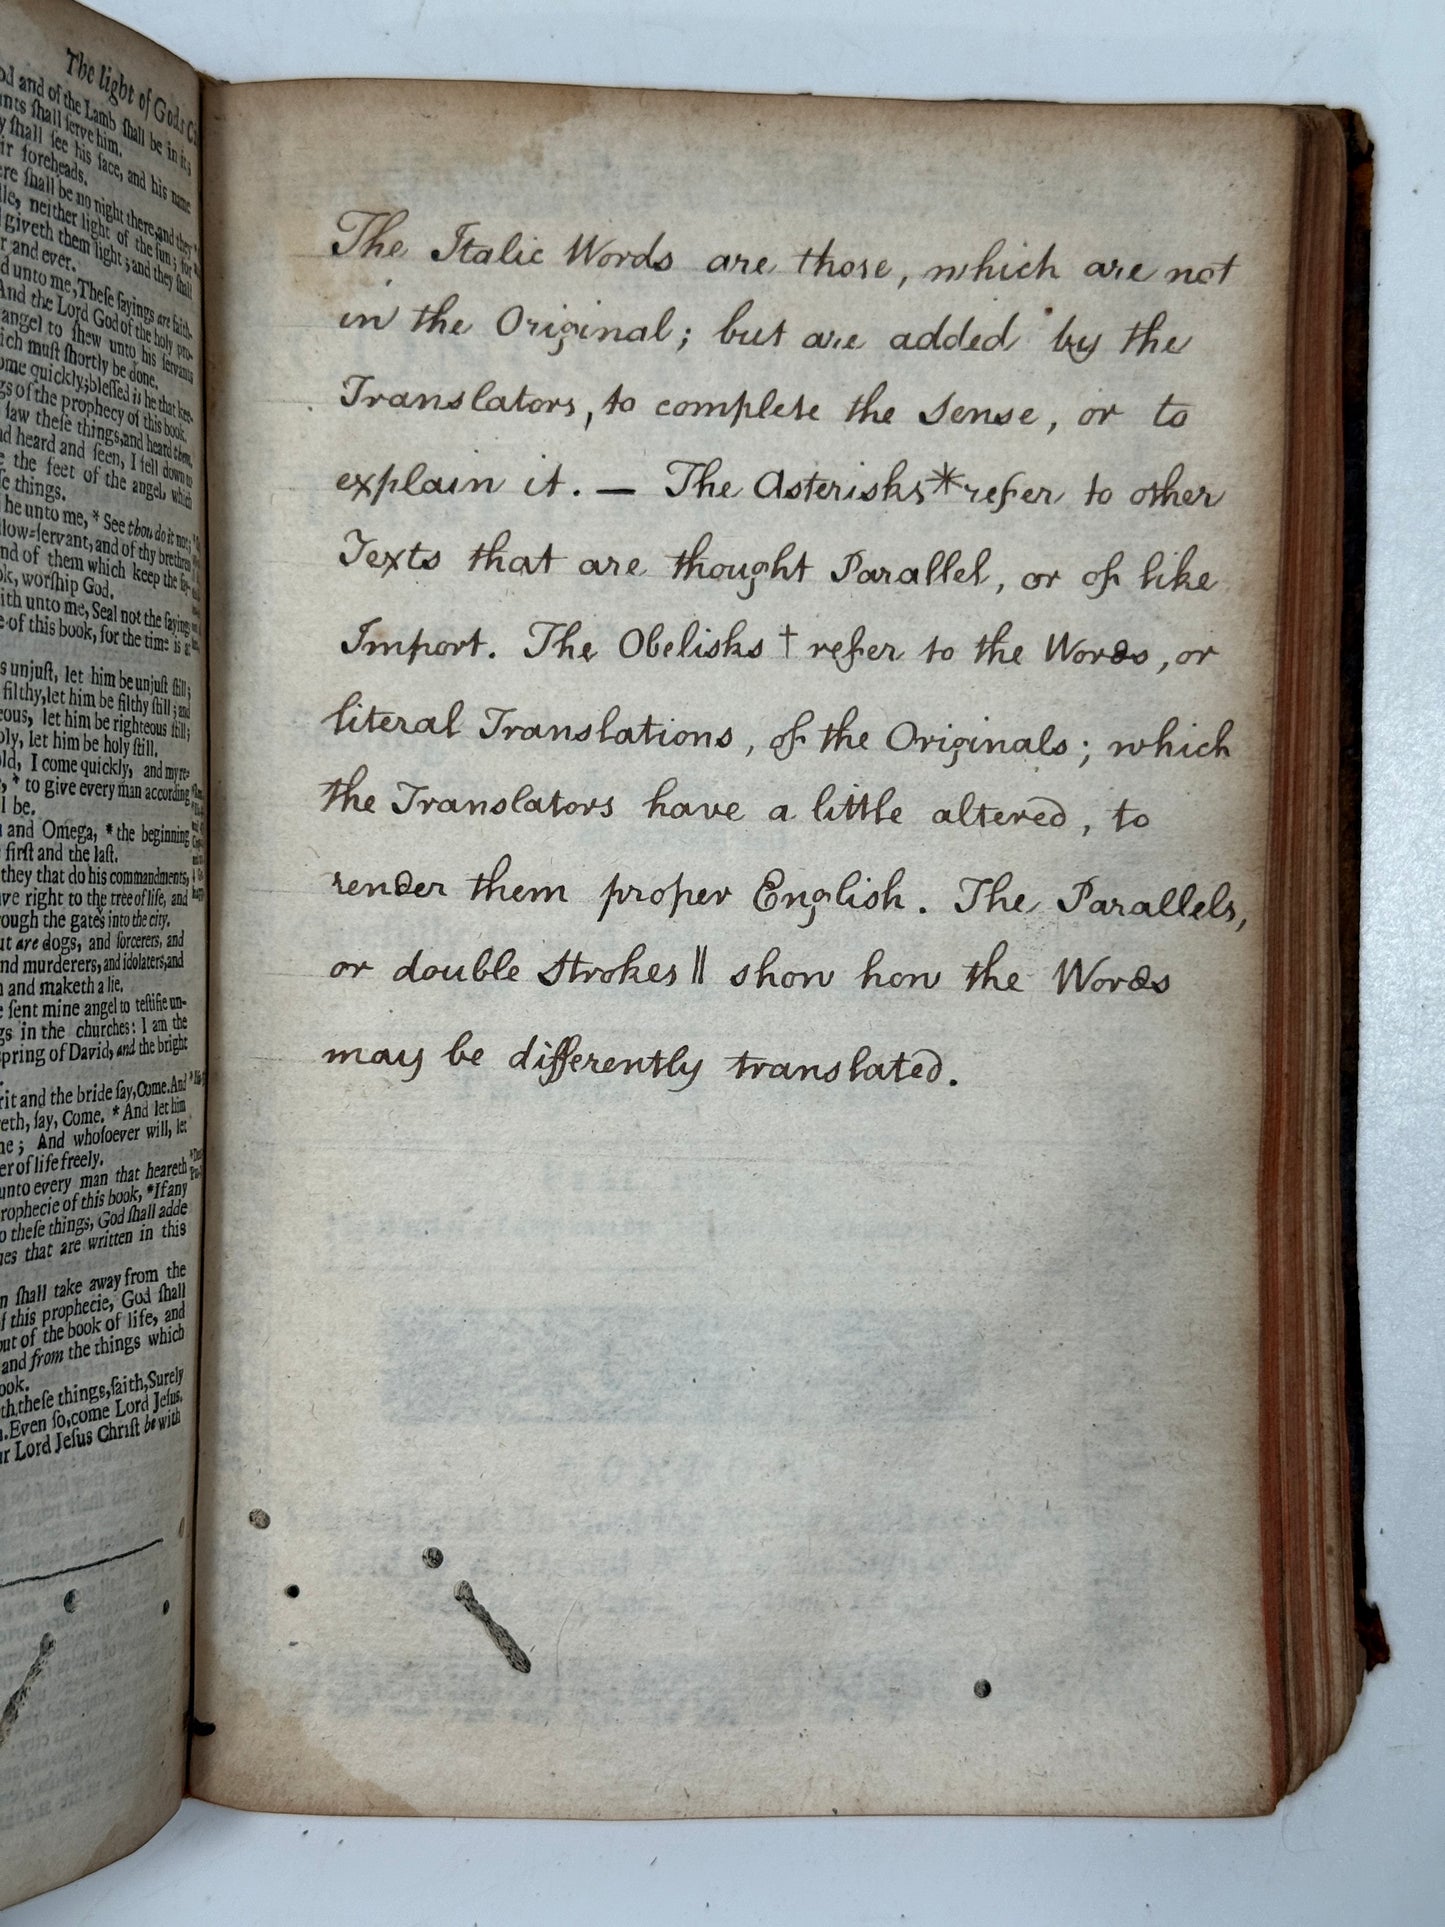 The light of Gods
od and of the Lamb shall be in it;
nts shall serve him.
shall see his face, and his name
ir foreheads.
ere shall be no night there, and they
lle, neither light of the sun; for
giveth them light; and they shall
r and ever.
d unto me, These sayings are faith-
And the Lord God of the holy pro-
angel to shew unto his servants
ich must shortly be done.
ome quickly; blessed is he that kee-
gs of the prophecy of this book.
saw these things, and heard them.
d heard and seen, I fell down to
e the feet of the angel, which
se things.
he unto me, * See thou do it not;
llow-servant, and of thy brethren
nd of them which keep the say-
ok, worship God.
ith unto me, Seal not the sayings
e of this book, for the time is at
s unjust, let him be unjust still;
filthy, let him be filthy still; and
eous, let him be righteous still;
oly, let him be holy still.
old, I come quickly, and my re-
, * to give every man according
l be.
and Omega, * the beginning
first and the last.
they that do his commandments,
ave right to the tree of life, and
rough the gates into the city.
ut are dogs, and sorcerers, and
nd murderers, and idolaters, and
h and maketh a lie.
e sent mine angel to testifie un-
gs in the churches: I am the
spring of David, and the bright
rit and the bride say, Come. And
reth, say, Come. * And let him
ne; And whosoever will, let
er of life freely.
unto every man that heareth
rophecie of this book, * If any
o these things, God shall adde
ues that are written in this
n shall take away from the
f this prophecie, God shall
out of the book of life, and
and from the things which
ook.
th these things, saith, Surely
n. Even so, come Lord Jesus.
ur Lord Jesus Christ be with
The Italic Words are those, which are not
in the Original; but are added by the
Translators, to complete the Sense, or to
explain it. — The Asterisks * refer to other
Texts that are thought Parallel, or of like
Import. The Obelisks † refer to the Words, or
literal Translations, of the Originals; which
the Translators have a little altered, to
render them proper English. The Parallels,
or double Strokes || show how the Words
may be differently translated.